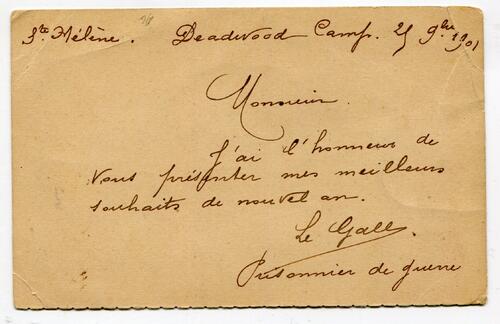 Ste Hélène. Deadwood Camp. 25 9bre 1901
Monsieur.
J'ai l'honneur de
Vous présenter mes meilleurs
souhaits de nouvel an.
Le Gall.
Prisonnier de guerre